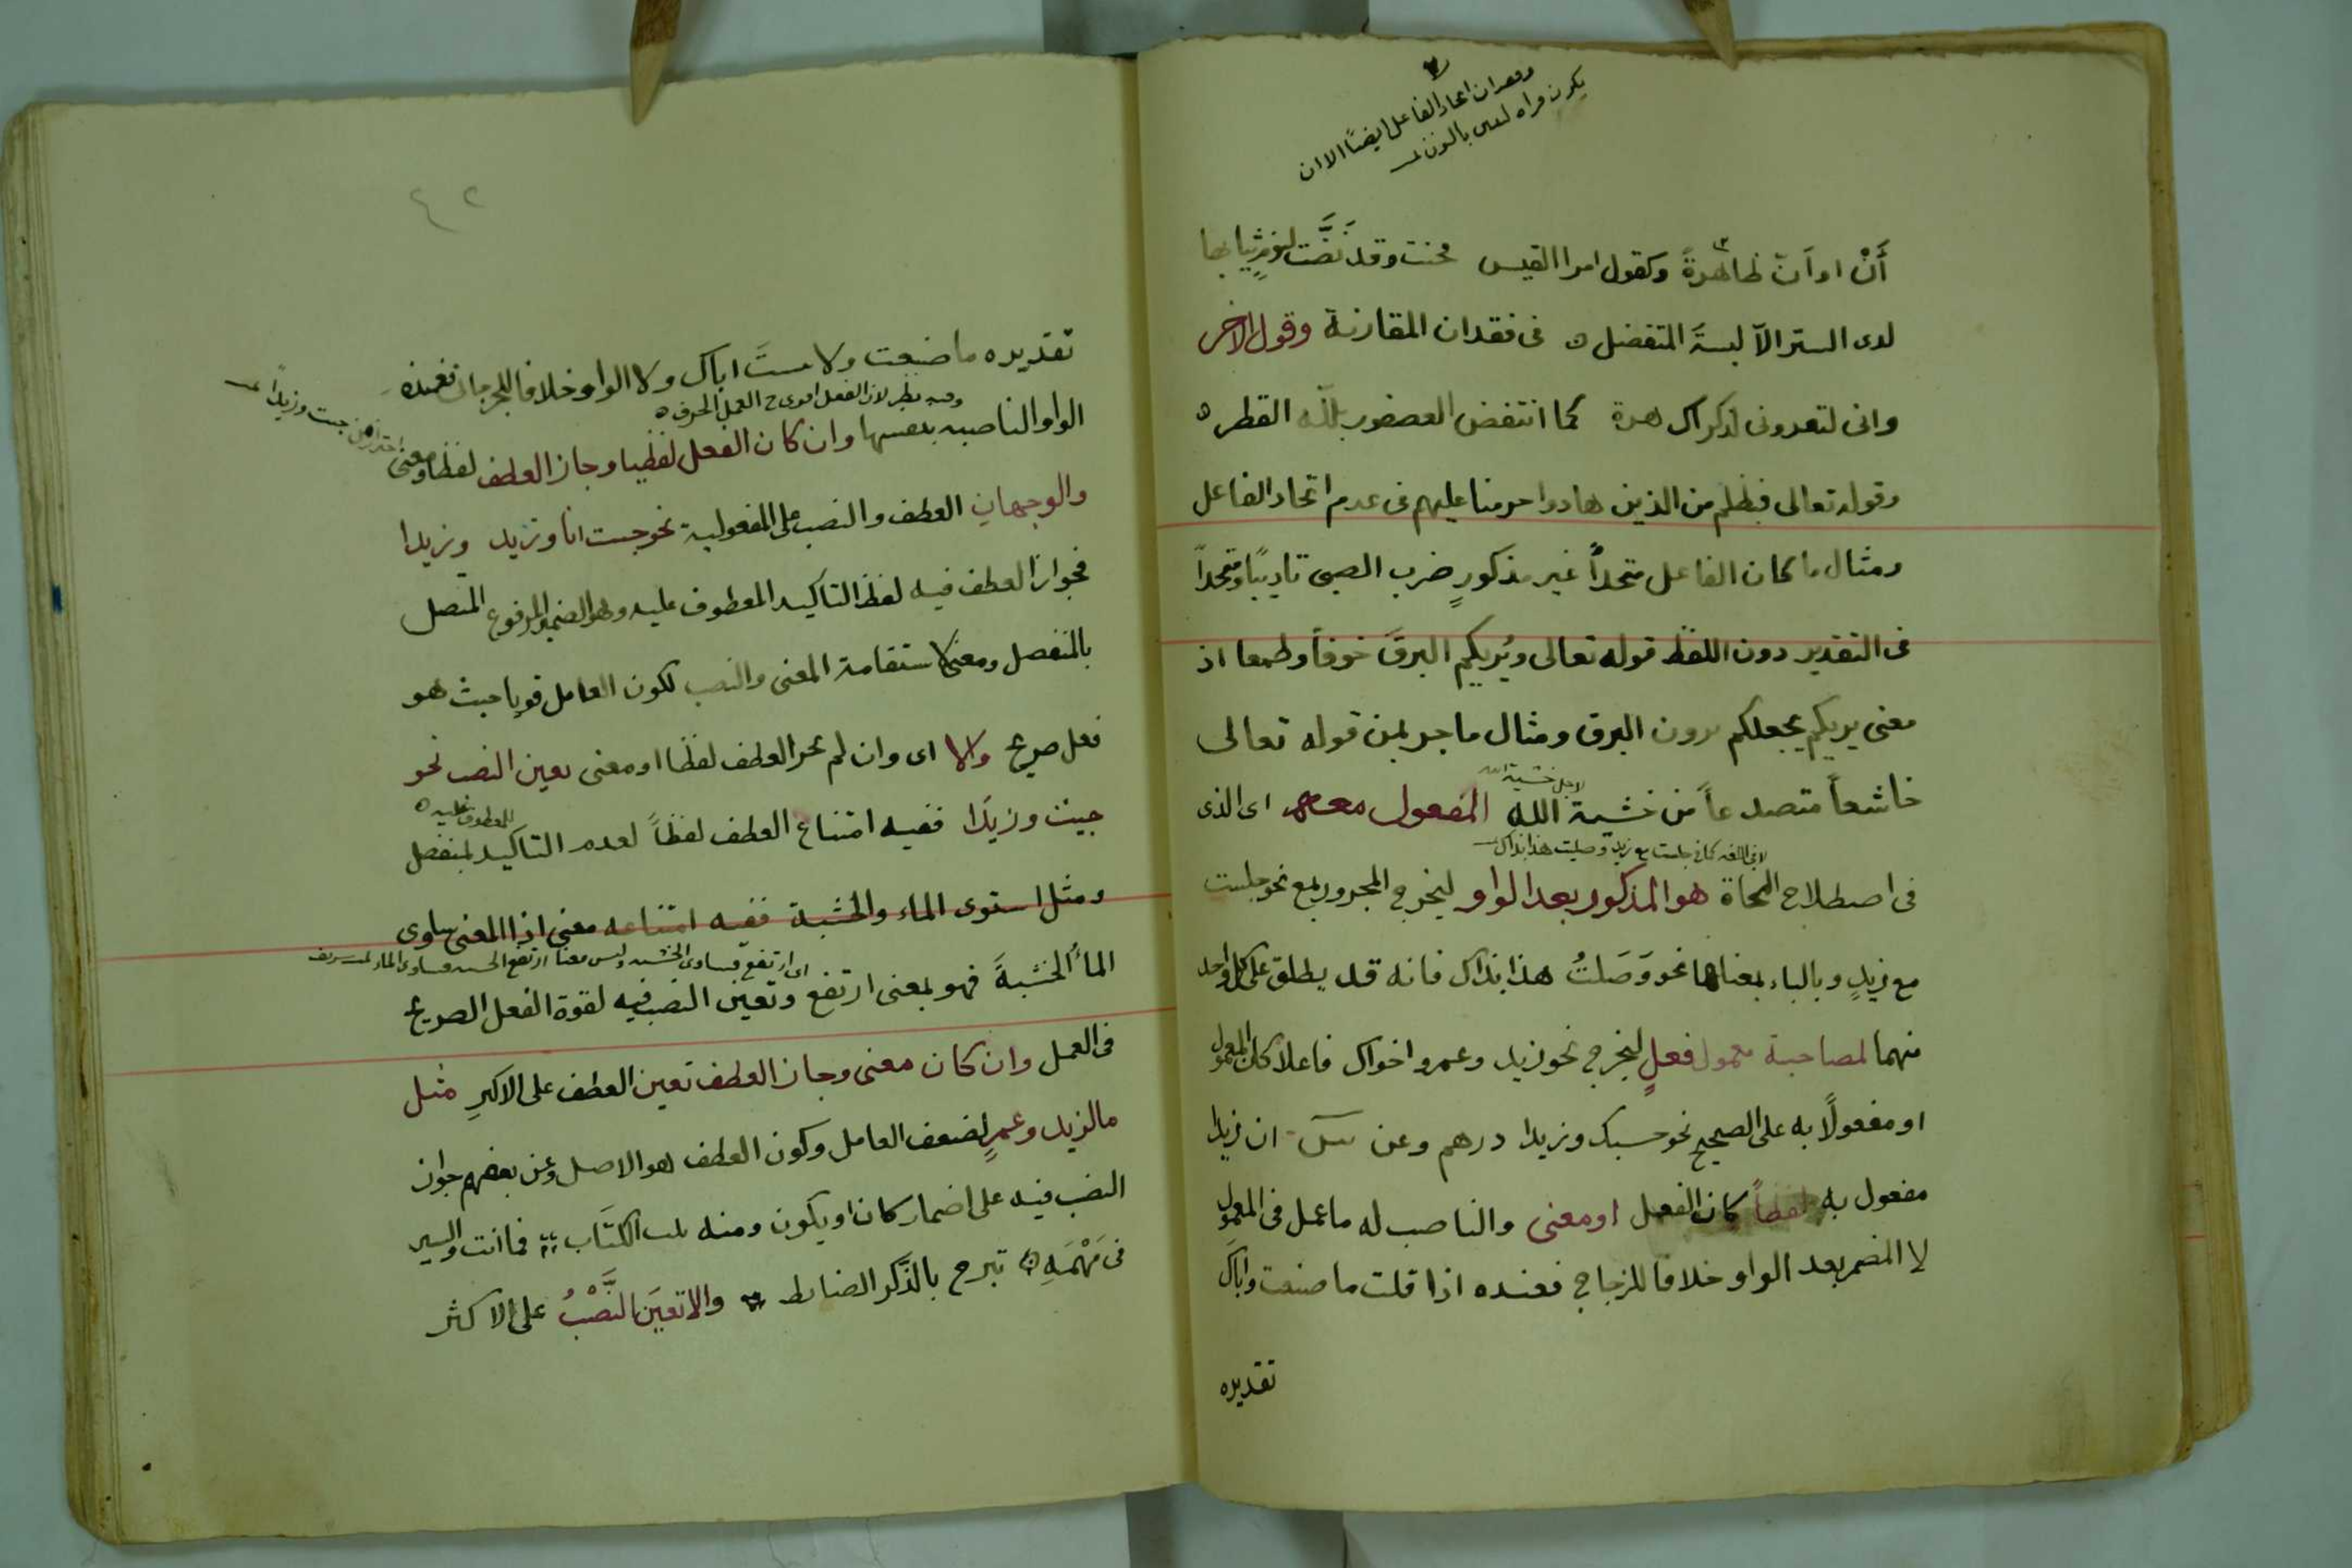 وفقدان اتحاد الفاعل ايضًا الا ان
يكون مراه لعـى بالنون
أنْ او آنَ ظاهرةً وكقول امرا القيس فجئت وقد نَضَّت لنومٍ ثيابها
لدى الستر الّا لبسةَ المتفضل ه فى فقدان المقارنة وقول الاخر
وانى لتعرونى لذكراك هزة كما انتفض العصفور بلله القطر ه
وقوله تعالى فبظلم من الذين هادوا حرمنا عليهم فى عدم اتحاد الفاعل
ومثال ما كان الفاعل متحداً غير مذكورٍ ضرب الصبى تاديبًا ومتحداً
فى التقدير دون اللفظ قوله تعالى ويُريكم البرقَ خوفاً وطمعا اذ
معنى يريكم يجعلكم يرون البرق ومثال ما جر بمن قوله تعالى
لاجل خشية الله
خاشعاً متصدعاً من خشية الله المفعول معه اى الذى
لا فى اللغه كما فى جلست مع زيد وصليت هذا بذاك
فى اصطلاح النحاة هو المذكور بعد الواو ليخرج المجرور بمع نحو جلست
مع زيدٍ وبالباء بمعناها نحو وَصَلتُ هذا بذاك فانه قد يطلق على كل واحد
منهما لمصاحبة معمول فعلٍ ليخرج نحو زيد وعمرو اخواك فاعلا كان المعمول
او مفعولًا به على الصحيح نحو حسبك وزيدا درهم وعن س ان زيدا
مفعول به لفظاً كان الفعل او معنى والناصب له ما عمل فى المعمول
لا المضمر بعد الواو خلافا للزجاج فعنده اذا قلت ما صنعت واباك
تقديره
٤٢
تقديره ما صنعت ولابست اباك ولا الواو خلافا للجرجانى فعنده
وفيه نظر لان الفعل اقوى فى العمل الحرف ه
الواو الناصبه بنفسها وان كان الفعل لفظيا وجاز العطف لفظا ومعنى
احتراز من جئت وزيدًا
والوجهان العطف والنصب على المفعولية نحو جئت انا وزيد وزيدا
فجواز العطف فيه لفظ التاكيد المعطوف عليه وهو الضمير المرفوع المتصل
بالمنفصل ومعنى لاستقامة المعنى والنصب لكون العامل قويا حيث هو
فعل صريح والا اى وان لم يجز العطف لفظا او معنى تعين النصب نحو
للمعطوف عليه ه
جيت وزيدًا ففيه امتناع العطف لفظاً لعدم التاكيد بمنفصل
ومثل استوى الماء والخشبة ففيه امتناعه معنى اذا المعنى ساوى
اى ارتفع فساوى الخشبه وليس معنا ارتفع الخشبه فساوى الماء
الماءُ الخشبةَ فهو بمعنى ارتفع وتعين النصب فيه لقوة الفعل الصريح
فى العمل وان كان معنى وجاز العطف تعين العطف على الاكثر مثل
ما لزيد وعمرٍو لضعف العامل وكون العطف هو الاصل وعن بعضهم جواز
النصب فيه على اضمار كان او يكون ومنه بيت الكتَاب فما انت والسير
فى مَهْمَهِ ه تبرح بالذَّكر الضابط والا تعيَن النَّصْبُ على الاكثر